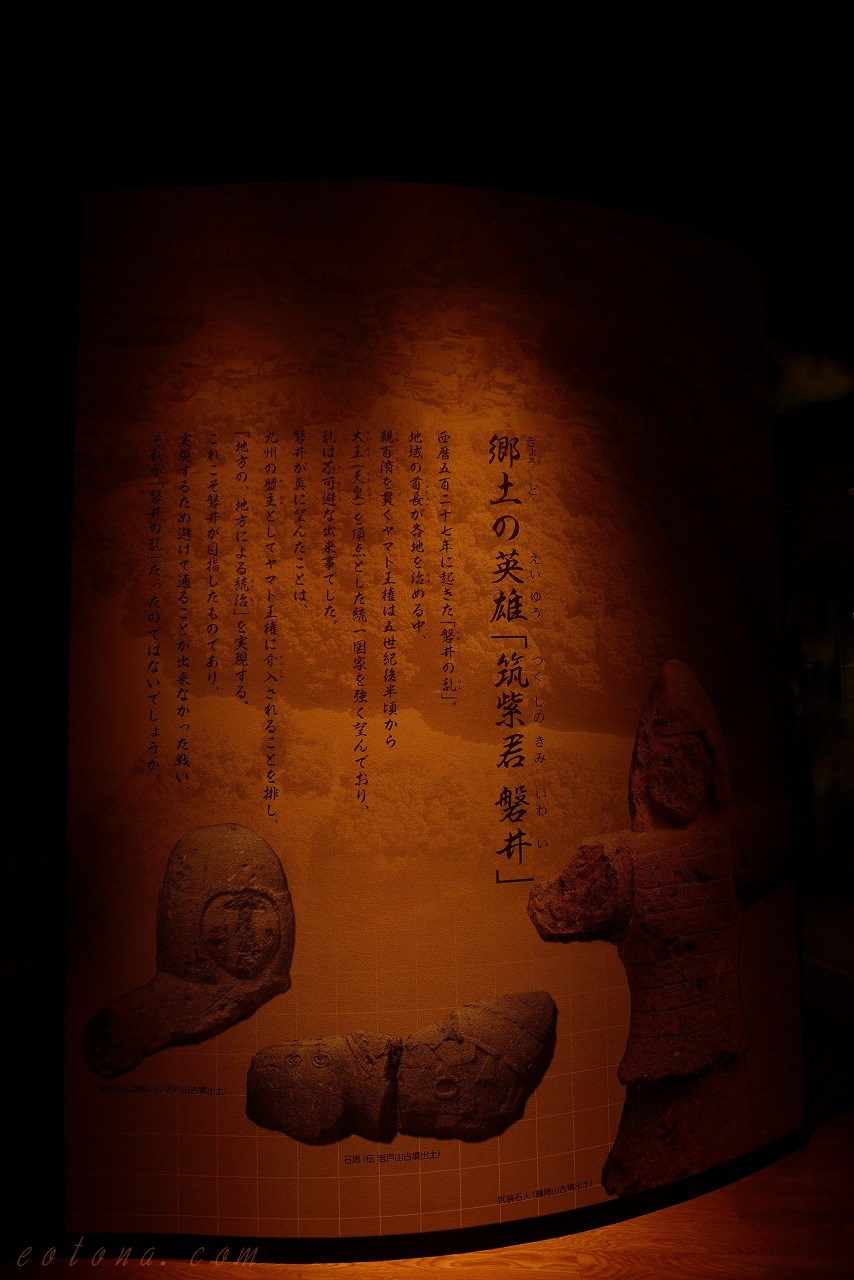 郷土の英雄「筑紫君 磐井」
西暦五百二十七年に起きた「磐井の乱」。
地域の首長が各地を治める中、
親百済を貫くヤマト王権は五世紀後半頃から
大王(天皇)を頂点とした統一国家を強く望んでおり、
乱は不可避な出来事でした。
磐井が真に望んだことは、
九州の盟主としてヤマト王権に介入されることを排し、
「地方の、地方による統治」を実現する。
これこそ磐井が目指したものであり、
実現するため避けて通ることが出来なかった戦い、
それが「磐井の乱」だったのではないでしょうか。
石馬(伝 岩戸山古墳出土)
武装石人(鶴見山古墳出土)
eotona.com